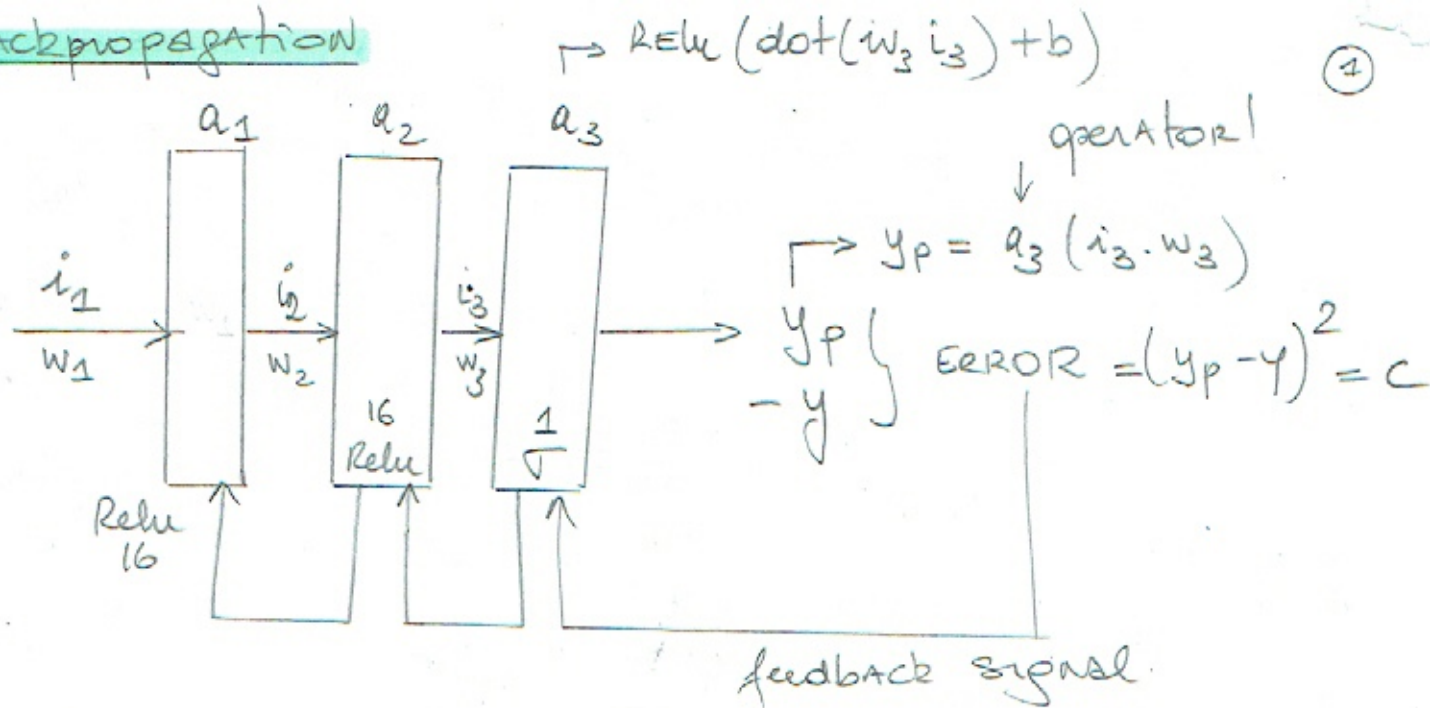 ackpropagation
→ RElu (dot(w₃ i₃) + b)
①
a₁ a₂ a₃
operator!
↓
→ yₚ = a₃ (i₃ . w₃)
i₁ i₂ i₃
w₁ w₂ w₃
yₚ
- y
ERROR = (yₚ - y)² = C
16
Relu
1
σ
Relu
16
feedback signal.